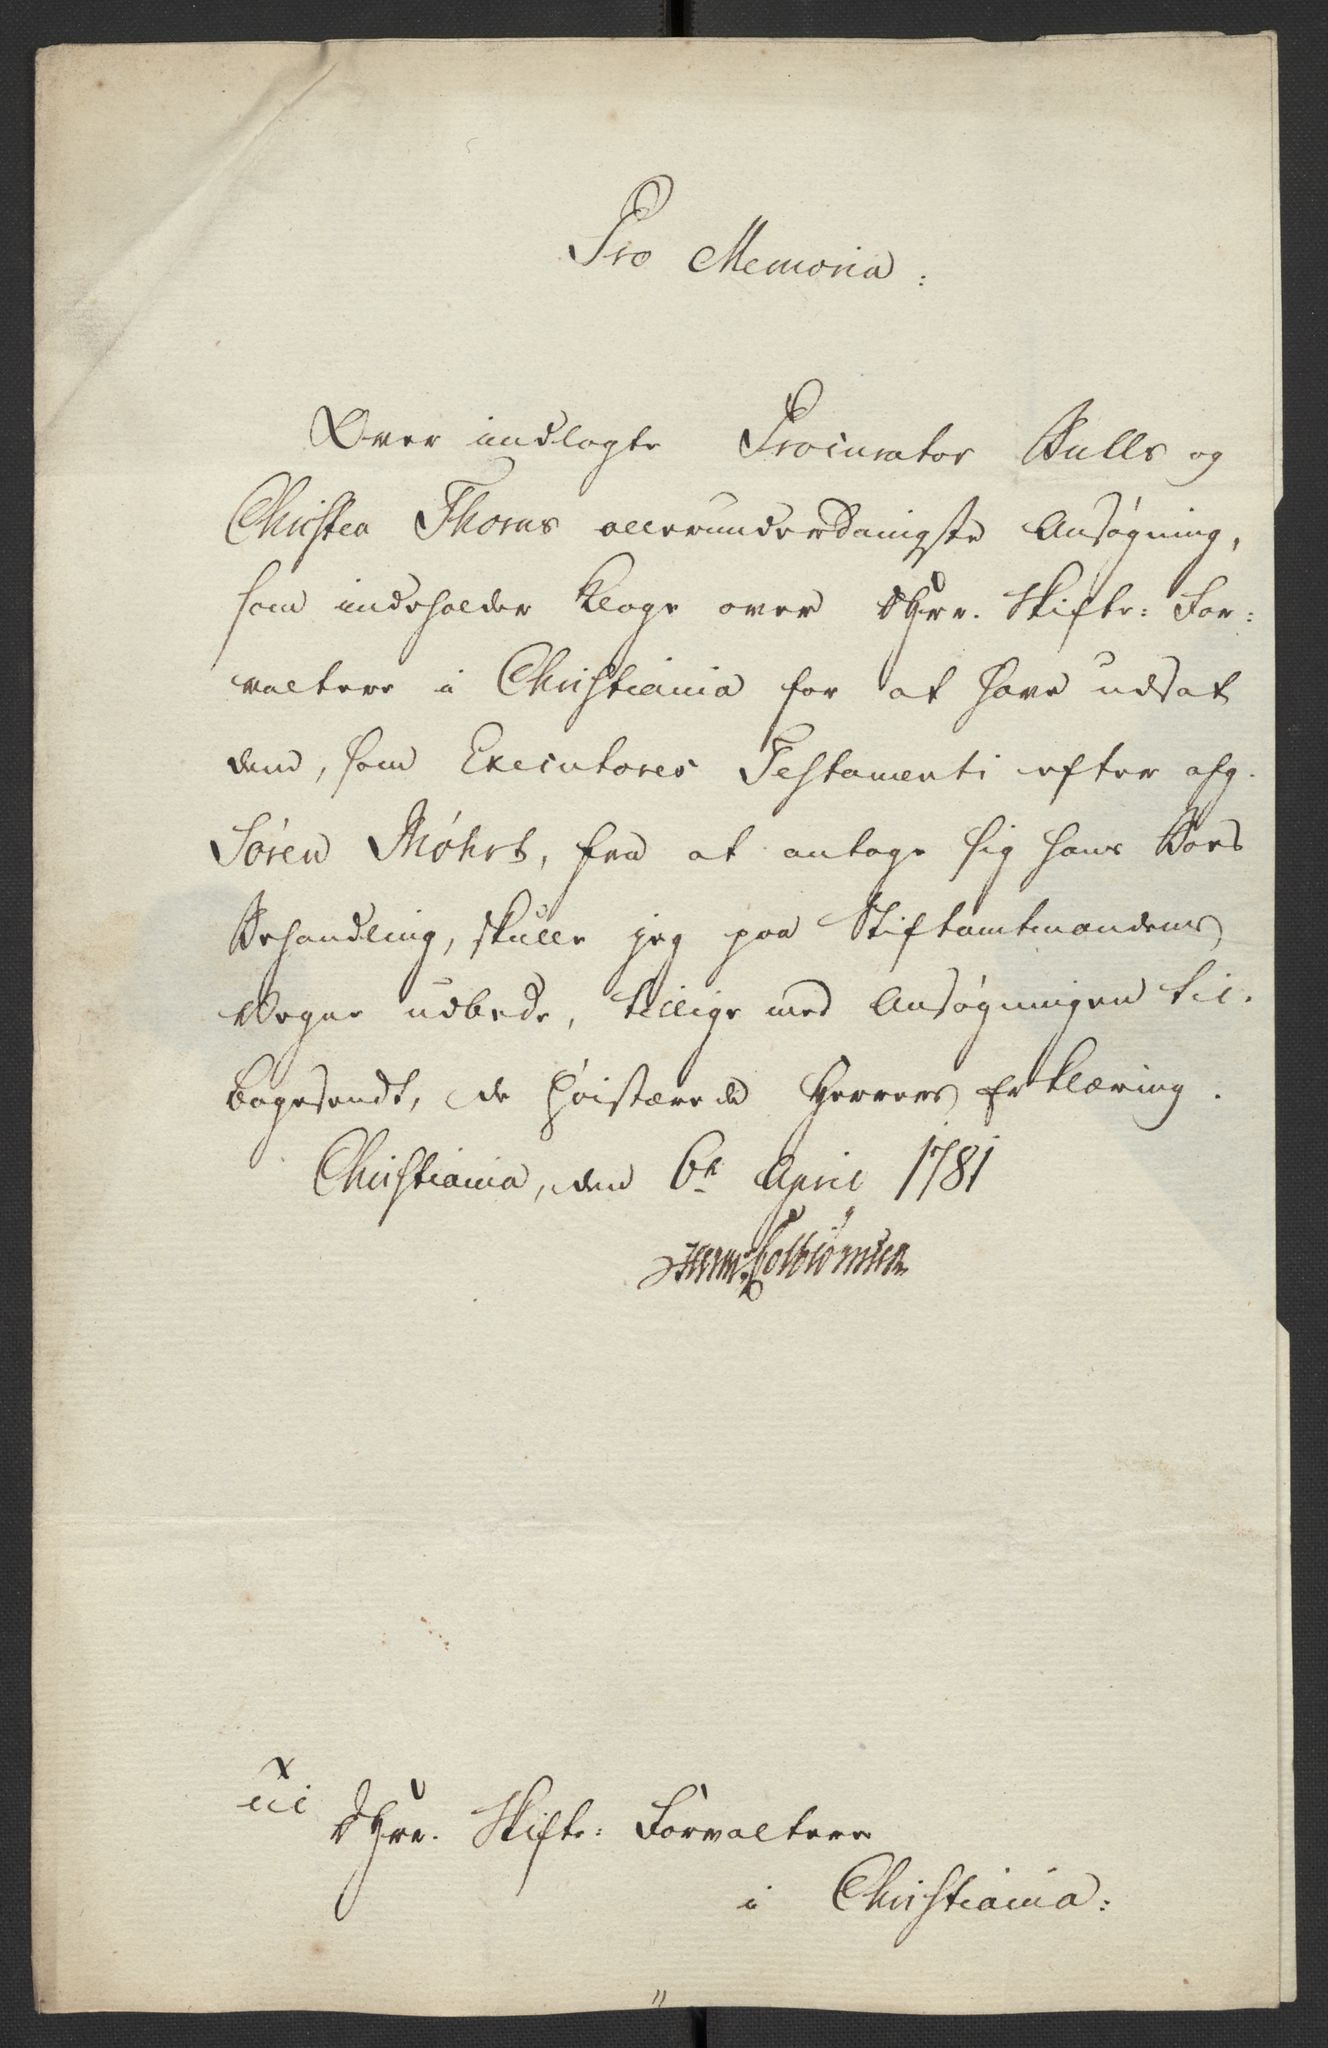 Pro Memoria:
Over indlagte Procurator Bulls og
Christen Thorns allerunderdanigste Ansøgning,
som indeholder Klage over DHrr. Skifte: For:
valtere i Christiania for at have udsat
dem, som Executores Testamenti efter afg.
Søren Møhrs, fra at antage sig hans Boes
Behandling, skulle jeg paa Stiftamtmandens
Vegne udbede, tillige med Ansøgningen til:
bagesendt, de Høistærede Herrers Erklæring.
Christiania, den 6te April 1781
Herm: Colbiørnsen
DHrr. Skifte: Forvaltere
i Christiania: